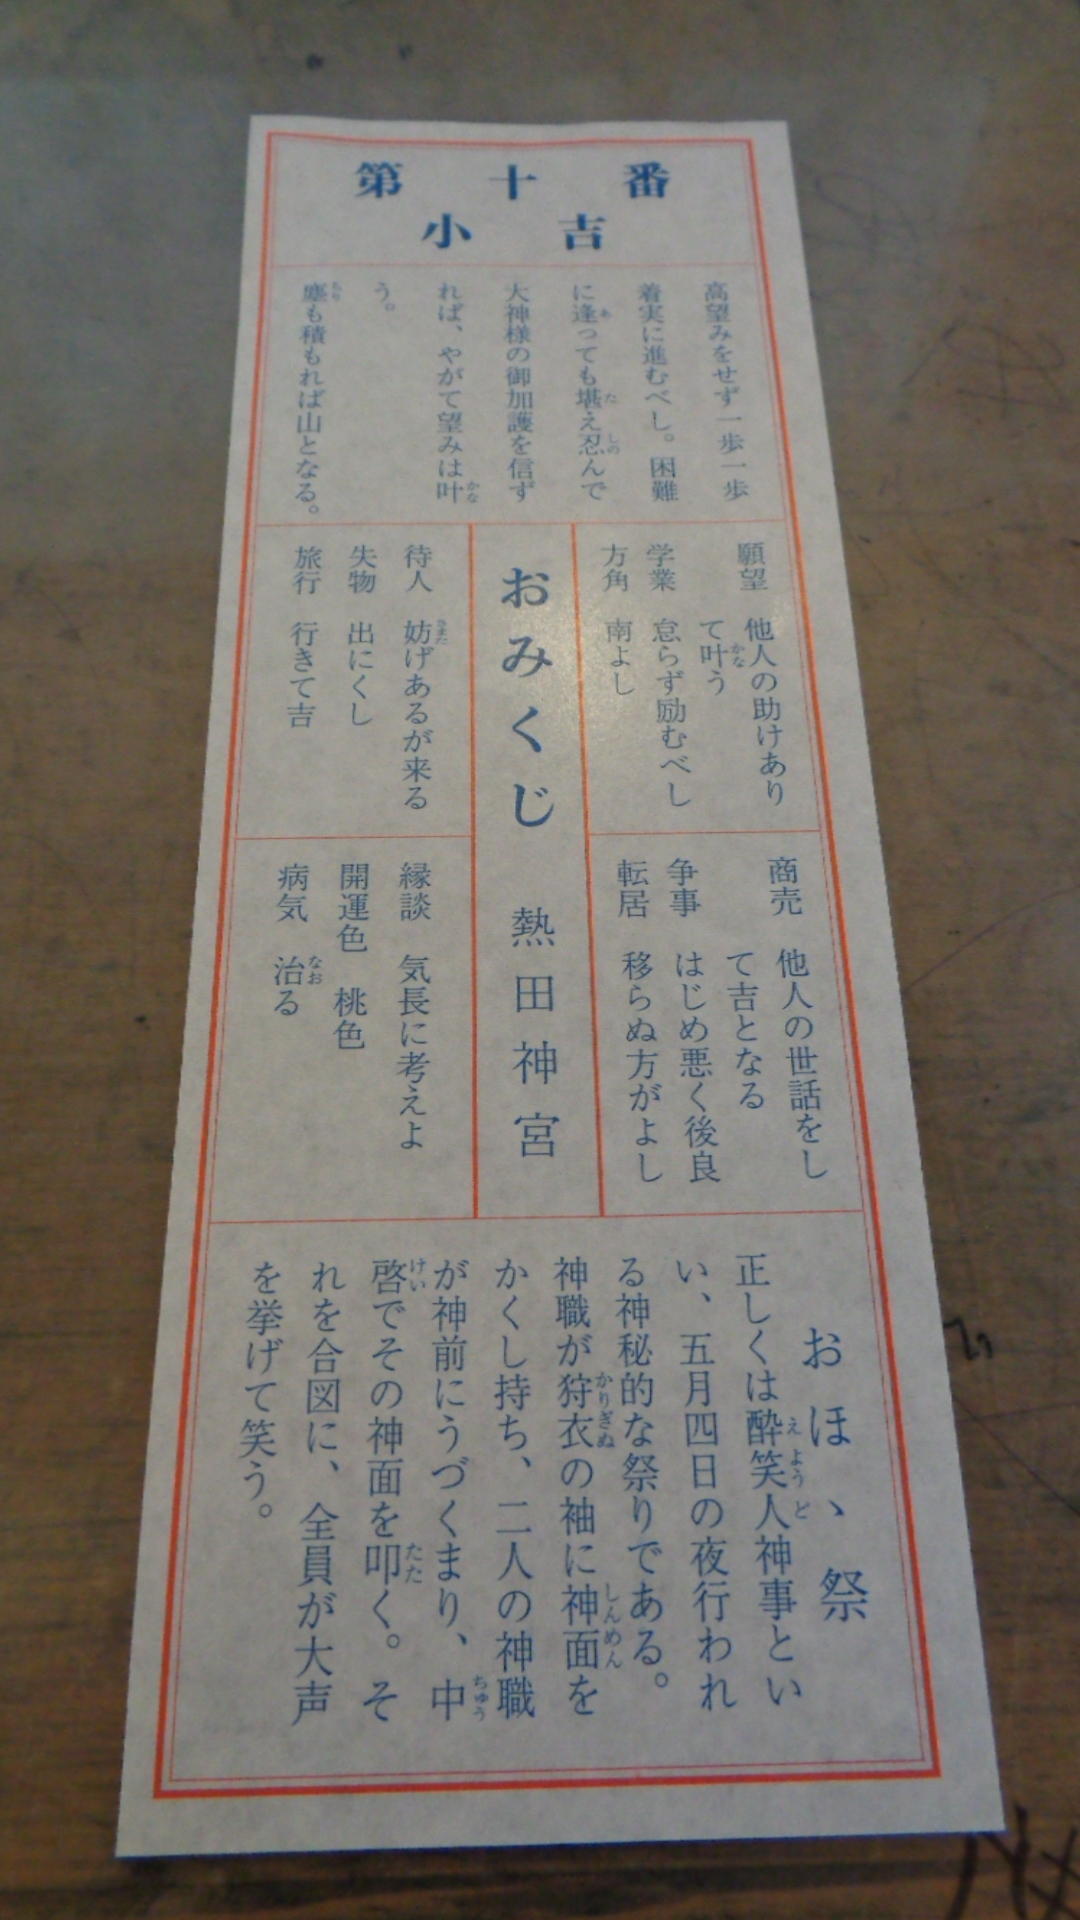 第十番
小吉
高望みをせず一歩一歩
着実に進むべし。困難
に逢っても堪え忍んで
大神様の御加護を信ず
れば、やがて望みは叶
う。
塵も積もれば山となる。
願望 他人の助けあり
て叶う
学業 怠らず励むべし
方角 南よし
おみくじ 熱田神宮
待人 妨げあるが来る
失物 出にくし
旅行 行きて吉
商売 他人の世話をし
て吉となる
争事 はじめ悪く後良
転居 移らぬ方がよし
縁談 気長に考えよ
開運色 桃色
病気 治る
おほゝ祭
正しくは酔笑人神事とい
い、五月四日の夜行われ
る神秘的な祭りである。
神職が狩衣の袖に神面を
かくし持ち、二人の神職
が神前にうづくまり、中
啓でその神面を叩く。そ
れを合図に、全員が大声
を挙げて笑う。